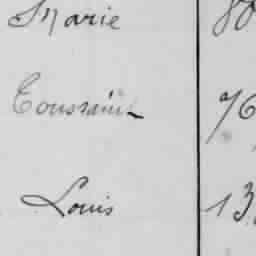 Marie 80
Toussaint 76
Louis 13